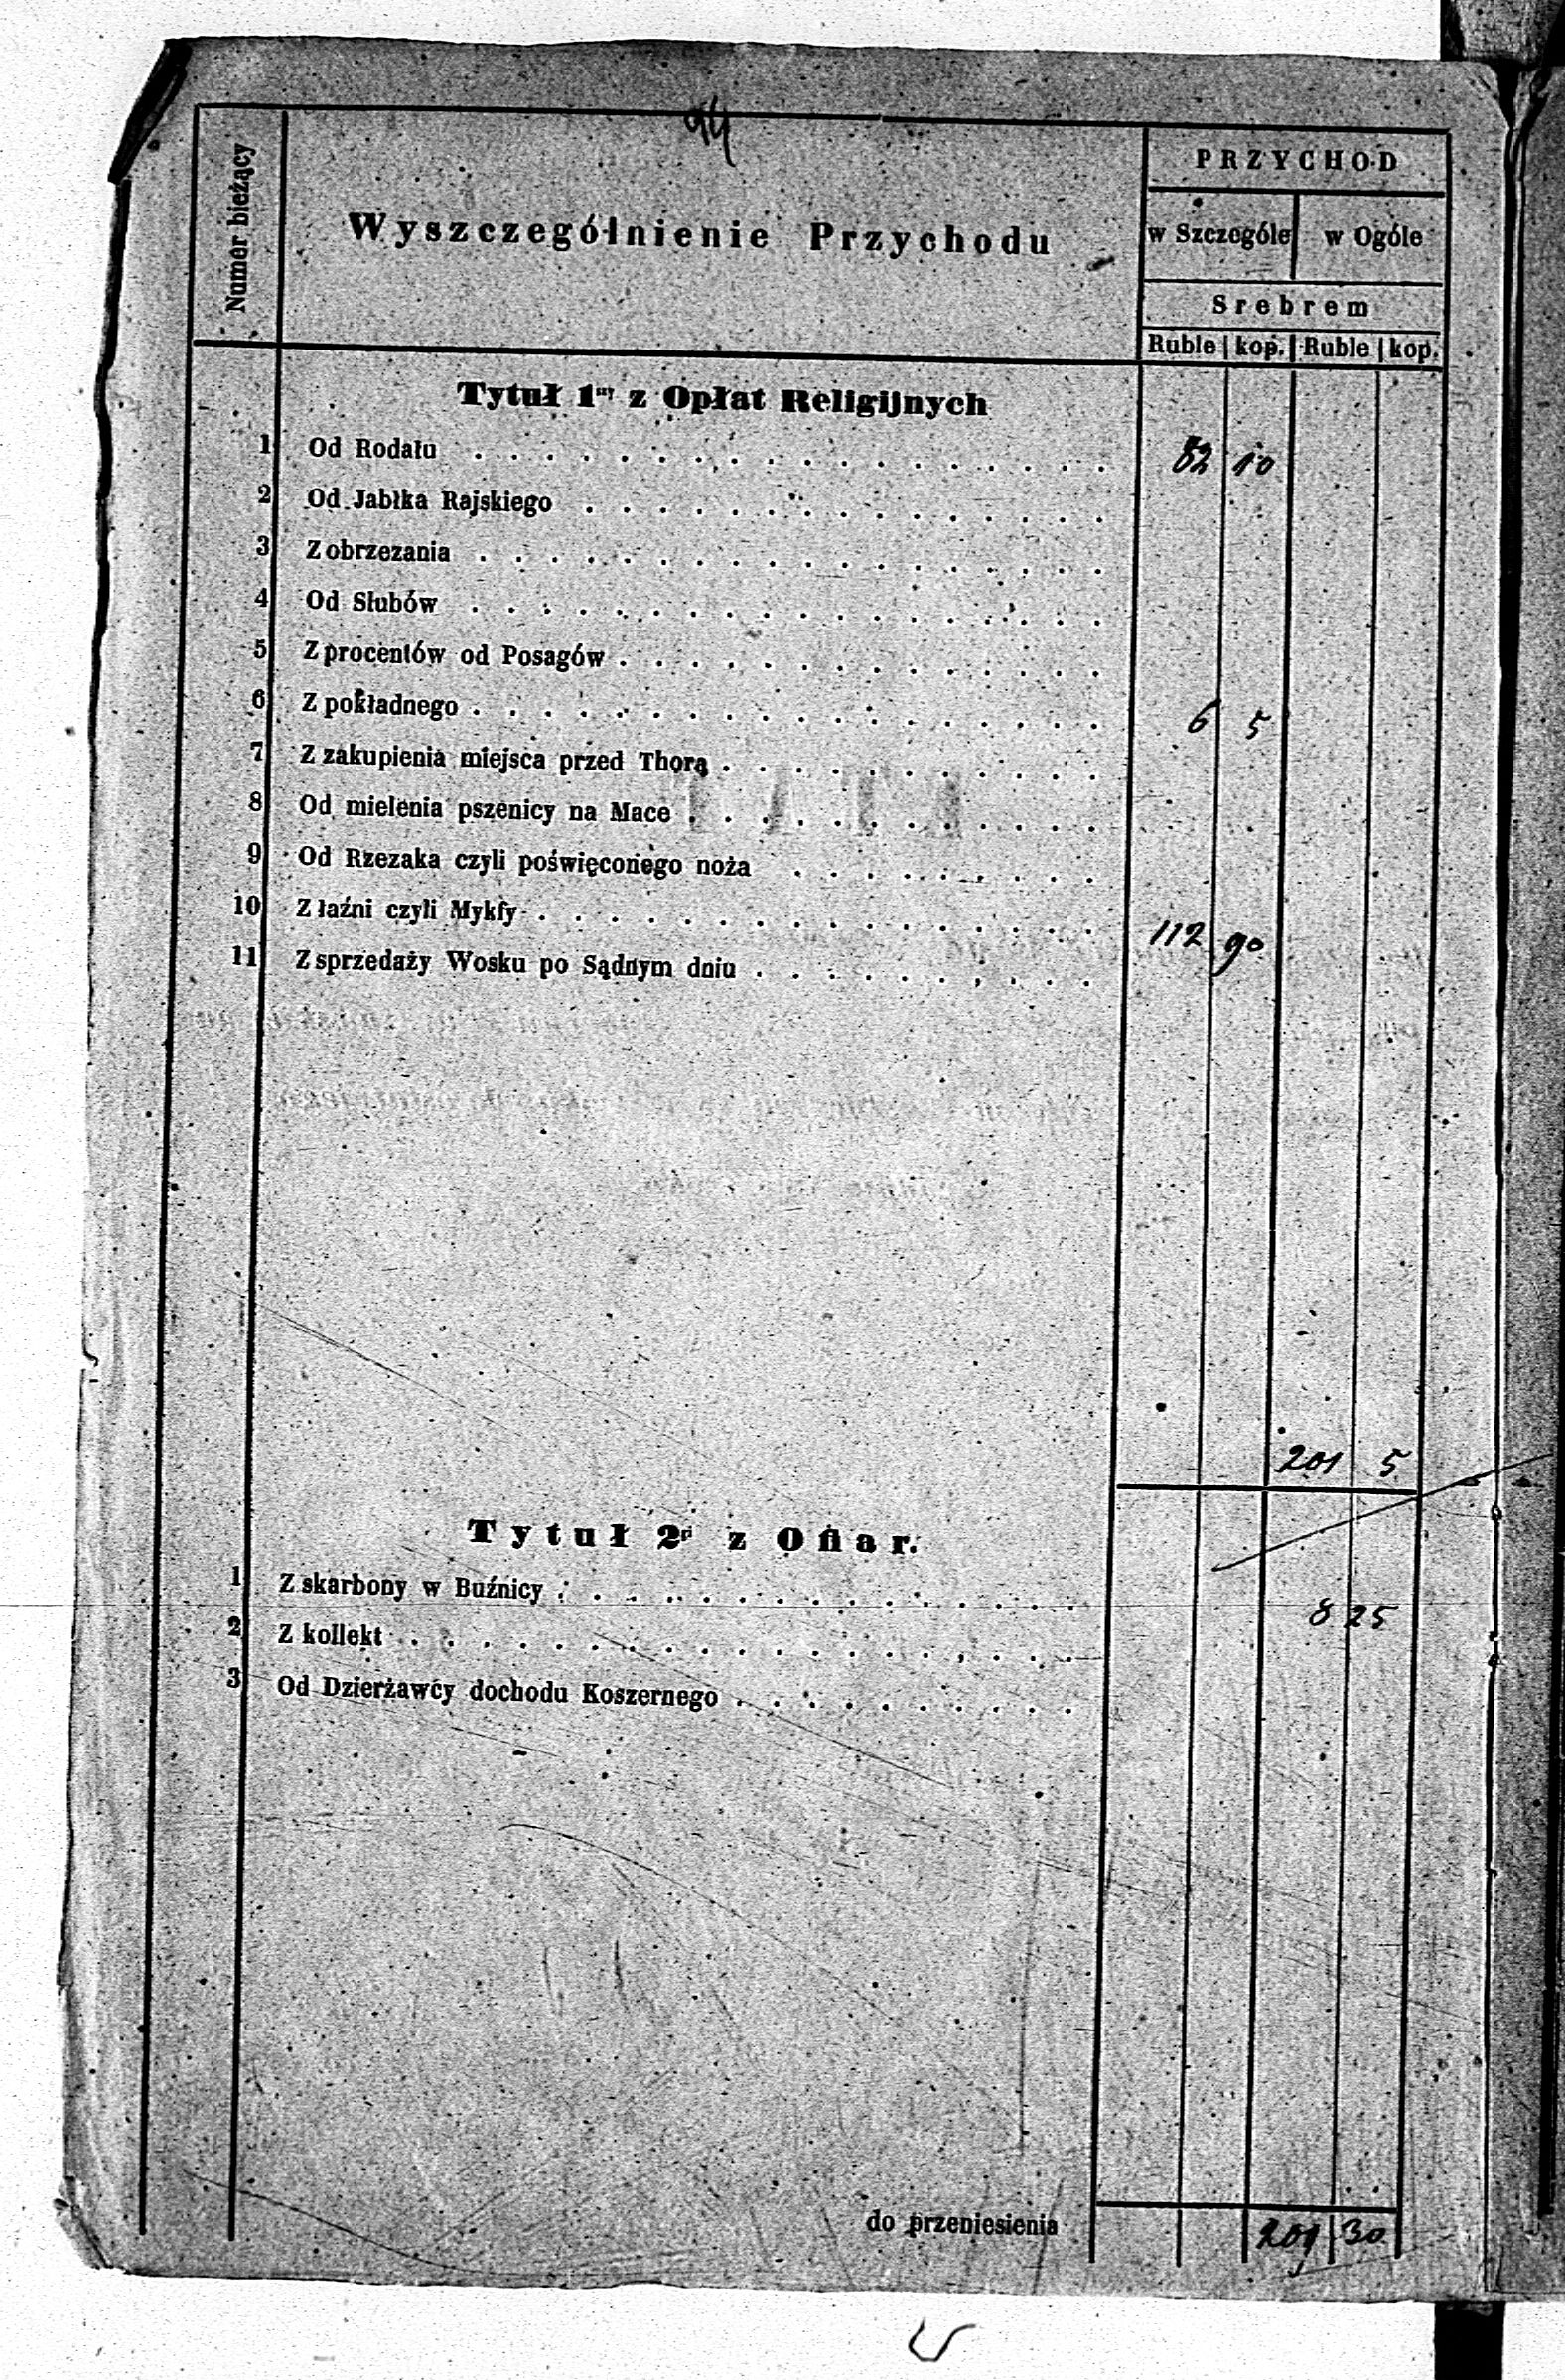 94
Numer bieżący
Wyszczególnienie Przychodu
PRZYCHOD
w Szczególe w Ogóle
Srebrem
Ruble kop. Ruble kop.
Tytuł 1ny z Opłat Religijnych
1 Od Rodału 82 10
2 Od Jabłka Rajskiego
3 Z obrzezania
4 Od Słubów
5 Z procentów od Posagów
6 Z pokładnego 6 5
7 Z zakupienia miejsca przed Thorą
8 Od mielenia pszenicy na Mace
9 Od Rzezaka czyli poświęconego noża
10 Z łaźni czyli Mykfy 112 90
11 Z sprzedaży Wosku po Sądnym dniu
201 5
Tytuł 2gi z Ofiar.
1 Z skarbony w Buźnicy 8 25
2 Z kollekt
3 Od Dzierżawcy dochodu Koszernego
do przeniesienia 209 30